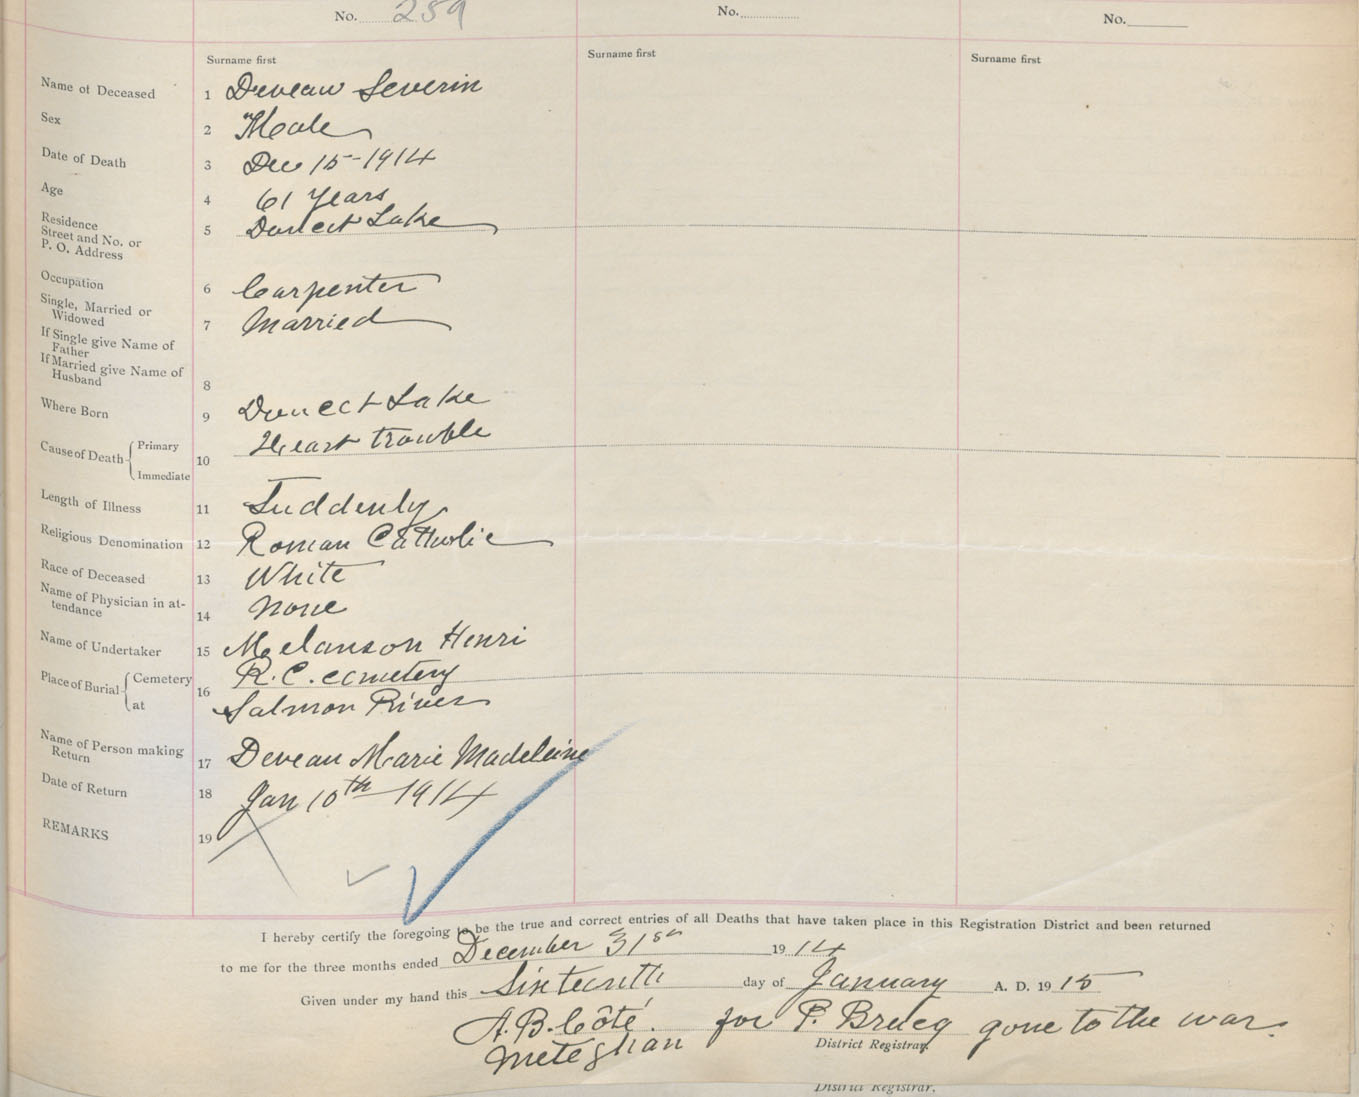 No. 259
No.
No.
Surname first
Surname first
Surname first
Name of Deceased 1 Deveau Severin
Sex 2 Male
Date of Death 3 Dec 15-1914
Age 4 61 Years
Residence
Street and No. or
P. O. Address 5 Lake
Occupation 6 Carpenter
Single, Married or
Widowed 7 Married
If Single give Name of
Father
If Married give Name of
Husband 8
Where Born 9 Lake
Cause of Death Primary 10 Heart trouble
Immediate
Length of Illness 11 Suddenly
Religious Denomination 12 Roman Catholic
Race of Deceased 13 White
Name of Physician in at-
tendance 14 None
Name of Undertaker 15 Melanson Henri
Place of Burial Cemetery 16 R.C. cemetery
at Salmon River
Name of Person making
Return 17 Deveau Marie Madeleine
Date of Return 18 Jan 10th 1914
REMARKS 19
I hereby certify the foregoing to be the true and correct entries of all Deaths that have taken place in this Registration District and been returned
to me for the three months ended December 31st 1914
Given under my hand this Sixteenth day of January A. D. 1915
A.B. Côté. for P. gone to the war.
Meteghan District Registrar.
District Registrar.